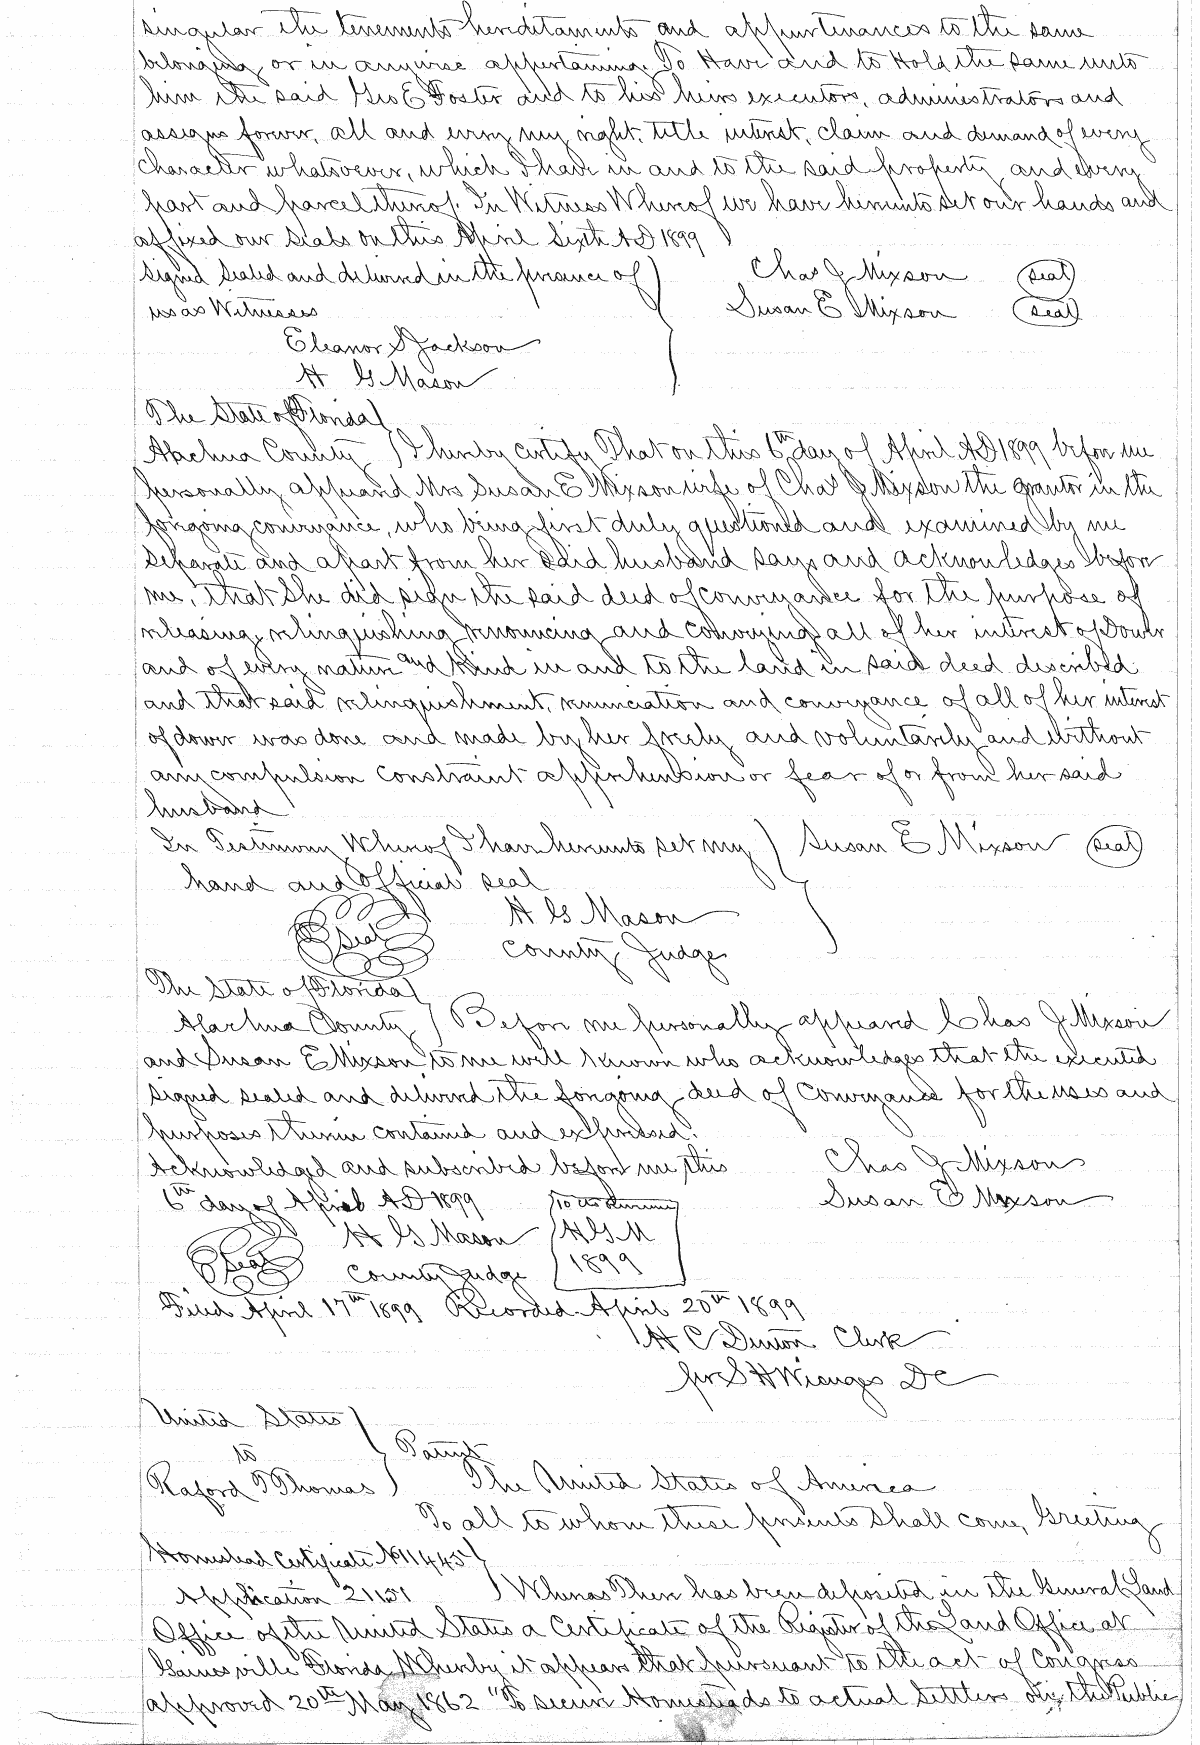 singular the tenements hereditaments and appurtenances to the same
belonging or in anywise appertaining. To Have and to Hold the same unto
him the said Geo E Foster and to his heirs executors, administrators and
assigns forever, all and every my right, title interest, claim and demand of every
character whatsoever, which I have in and to the said property and every
part and parcel thereof. In Witness Whereof we have hereunto set our hands and
affixed our seals on this April Sixth AD 1899
Signed sealed and delivered in the presence of ) Chas J Mixson (seal)
us as Witnesses Susan E Mixson (seal)
Eleanor S Jackson
H G Mason
The State of Florida )
Alachua County ) I hereby certify That on this 6th day of April AD 1899 before me
personally appeared Mrs Susan E Mixson wife of Chas J Mixson the grantor in the
foregoing conveyance, who being first duly questioned and examined by me
separate and apart from her said husband says and acknowledges before
me, that She did sign the said deed of conveyance for the purpose of
releasing, relinquishing renouncing and conveying all of her interest of Dower
and of every nature and kind in and to the land in said deed described
and that said relinquishment, renunciation and conveyance of all of her interest
of dower was done and made by her freely and voluntarily and without
any compulsion constraint apprehension or fear of or from her said
husband
In Testimony Whereof I have hereunto set my ) Susan E Mixson (seal)
hand and Official seal
Seal H G Mason
County Judge
The State of Florida )
Alachua County ) Before me personally appeared Chas J Mixson
and Susan E Mixson to me well known who acknowledges that the executed
signed sealed and delivered the foregoing deed of Conveyance for the uses and
purposes therein contained and expressed.
Acknowledged and subscribed before me this Chas J Mixson
6th day of April AD 1899 Susan E Mixson
H G Mason H.G.M
Seal County Judge 1899
Filed April 17th 1899 Recorded April 20th 1899
H C Denton Clerk
per S H Wienges DC
United States )
to ) Patent
Raford T Thomas ) The United States of America
To all to whom these presents shall come, Greeting
Homestead Certificate No 11445 )
Application 21151 ) Whereas There has been deposited in the General Land
Office of the United States a Certificate of the Register of the Land Office at
Gainesville Florida, Whereby it appears that pursuant to the act of Congress
approved 20th May 1862 "To secure Homesteads to actual Settlers on the Public